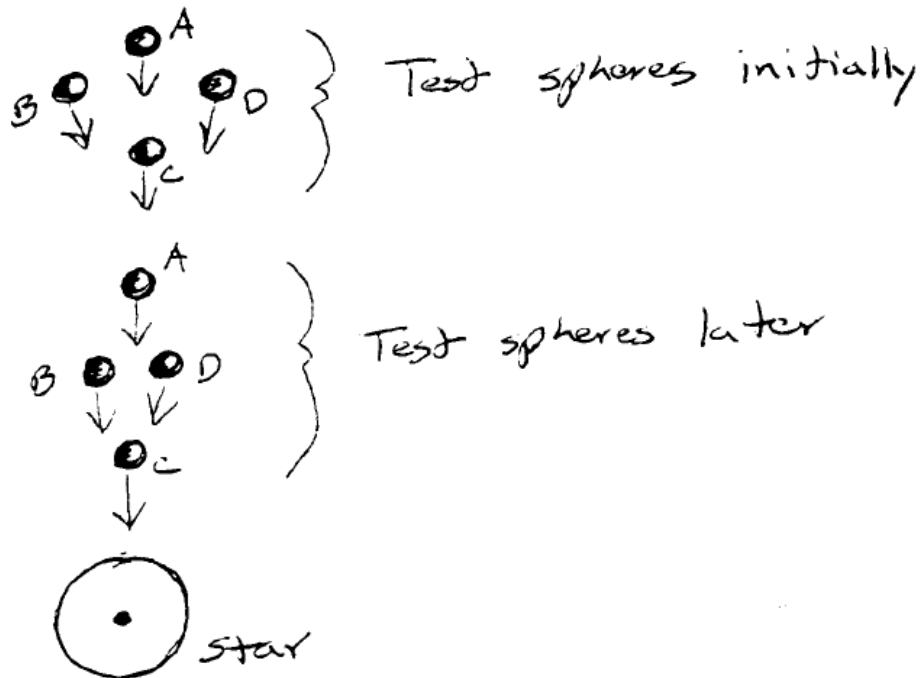 A
B
D
C
Test spheres initially
A
B
D
C
Test spheres later
star